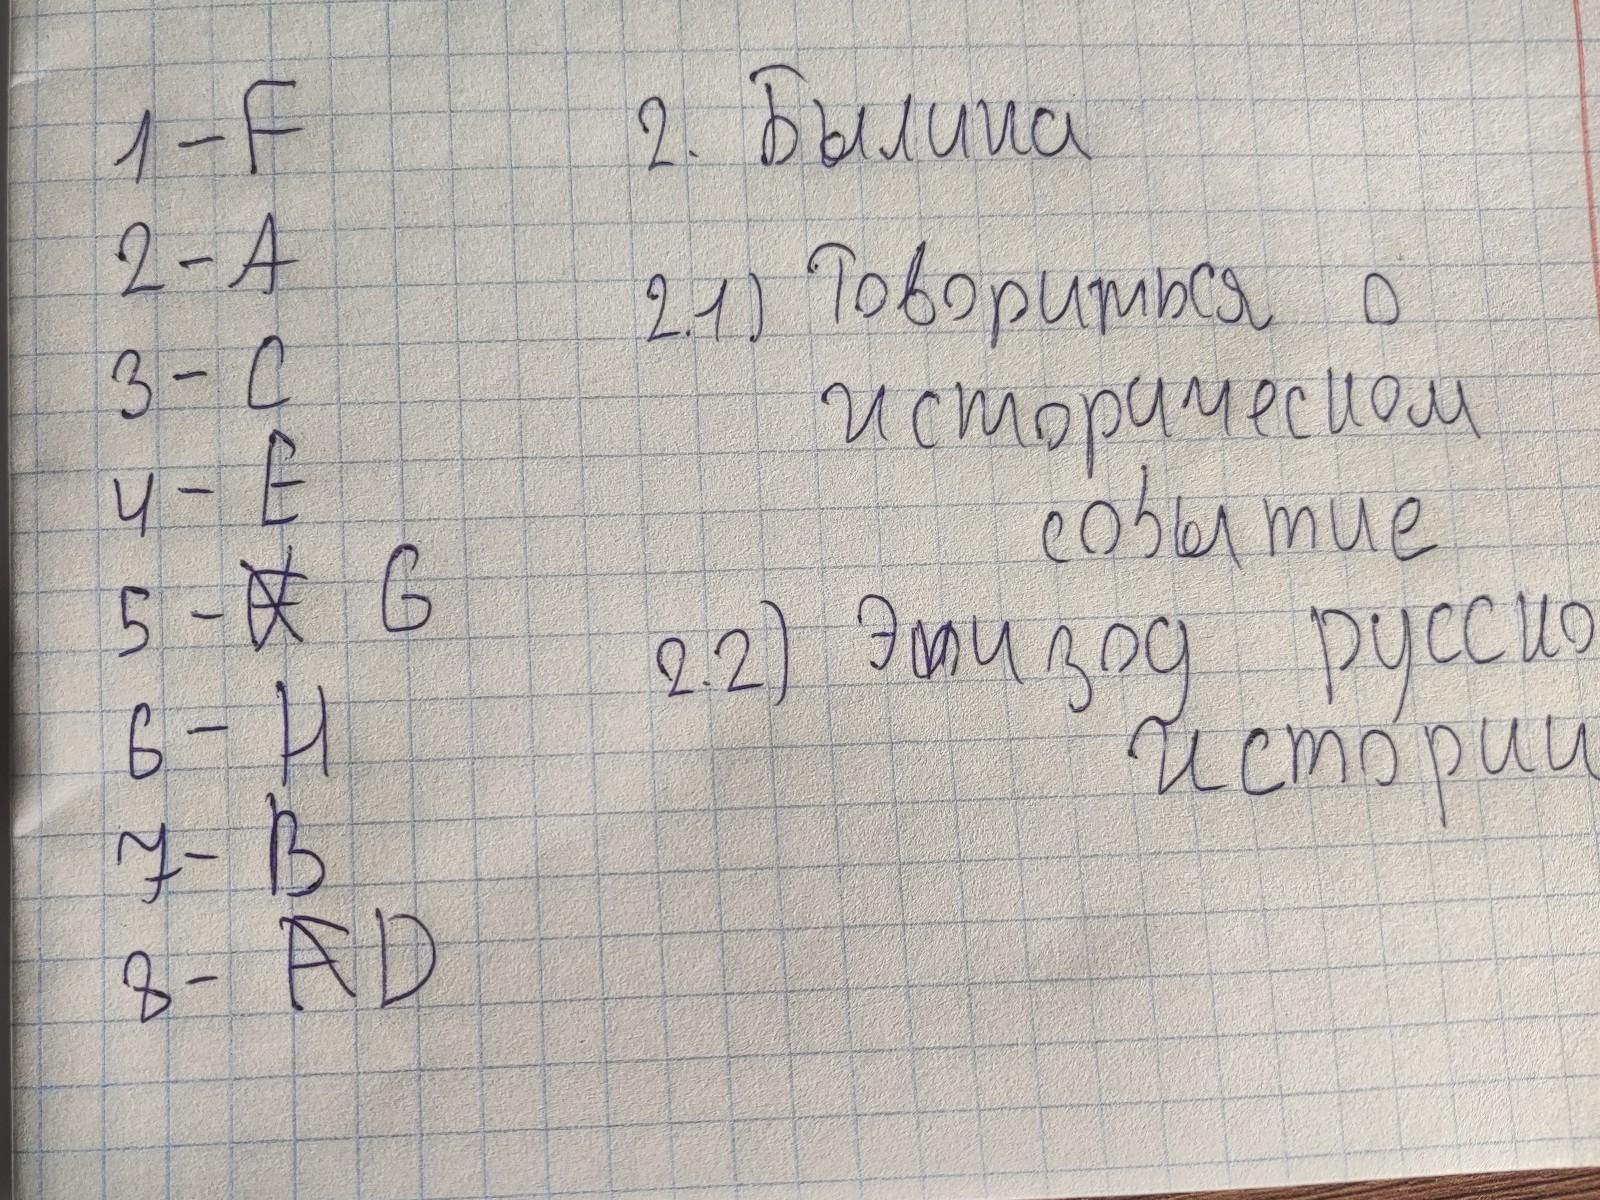 1 - F
2 - A
3 - C
4 - E
5 - G
6 - H
7 - B
8 - AD
2. Былина
2.1) Говориться о
историческом
событие
2.2) Эпизод русско
истории